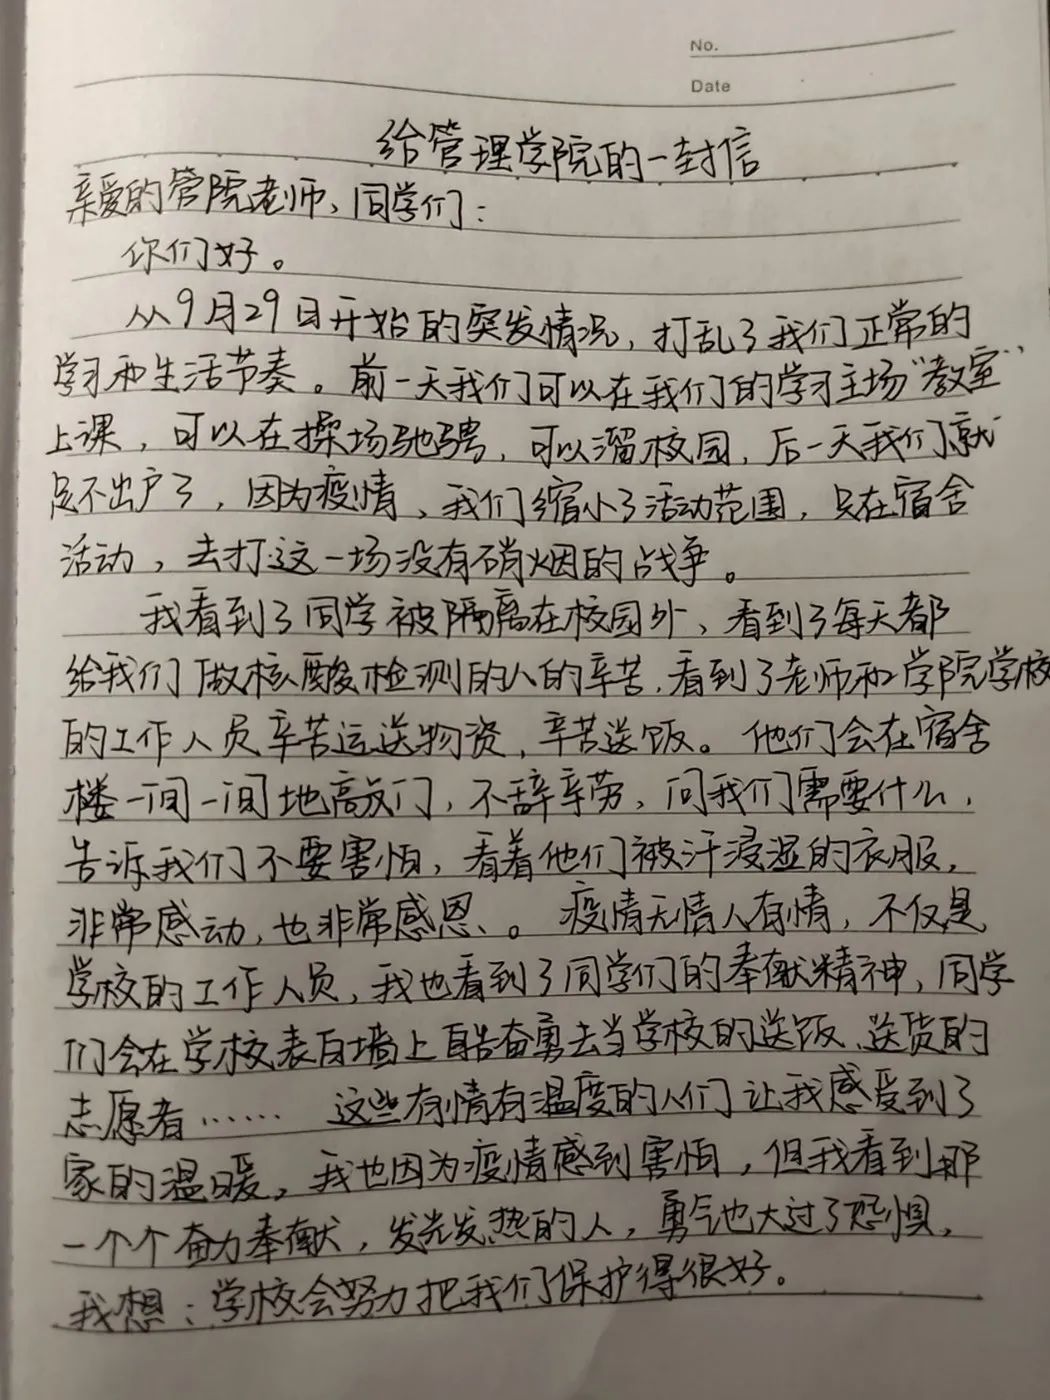 No.
Date
给管理学院的一封信
亲爱的管院老师、同学们：
你们好。
从9月29日开始的突发情况，打乱了我们正常的
学习和生活节奏。前一天我们可以在我们的学习主场“教室”
上课，可以在操场驰骋，可以溜校园，后一天我们就
足不出户了，因为疫情，我们缩小了活动范围，只在宿舍
活动，去打这一场没有硝烟的战争。
我看到了同学被隔离在校园外，看到了每天都
给我们做核酸检测的人的辛苦，看到了老师和学院学校
的工作人员辛苦运送物资，辛苦送饭。他们会在宿舍
楼一间一间地敲门，不辞辛劳，问我们需要什么，
告诉我们不要害怕，看着他们被汗浸湿的衣服，
非常感动，也非常感恩、。疫情无情人有情，不仅是
学校的工作人员，我也看到了同学们的奉献精神，同学
们会在学校表白墙上自告奋勇去当学校的送饭、送货的
志愿者……这些有情有温度的人们让我感受到了
家的温暖，我也因为疫情感到害怕，但我看到那
一个个奋力奉献，发光发热的人，勇气也大过了恐惧，
我想：学校会努力把我们保护得很好。